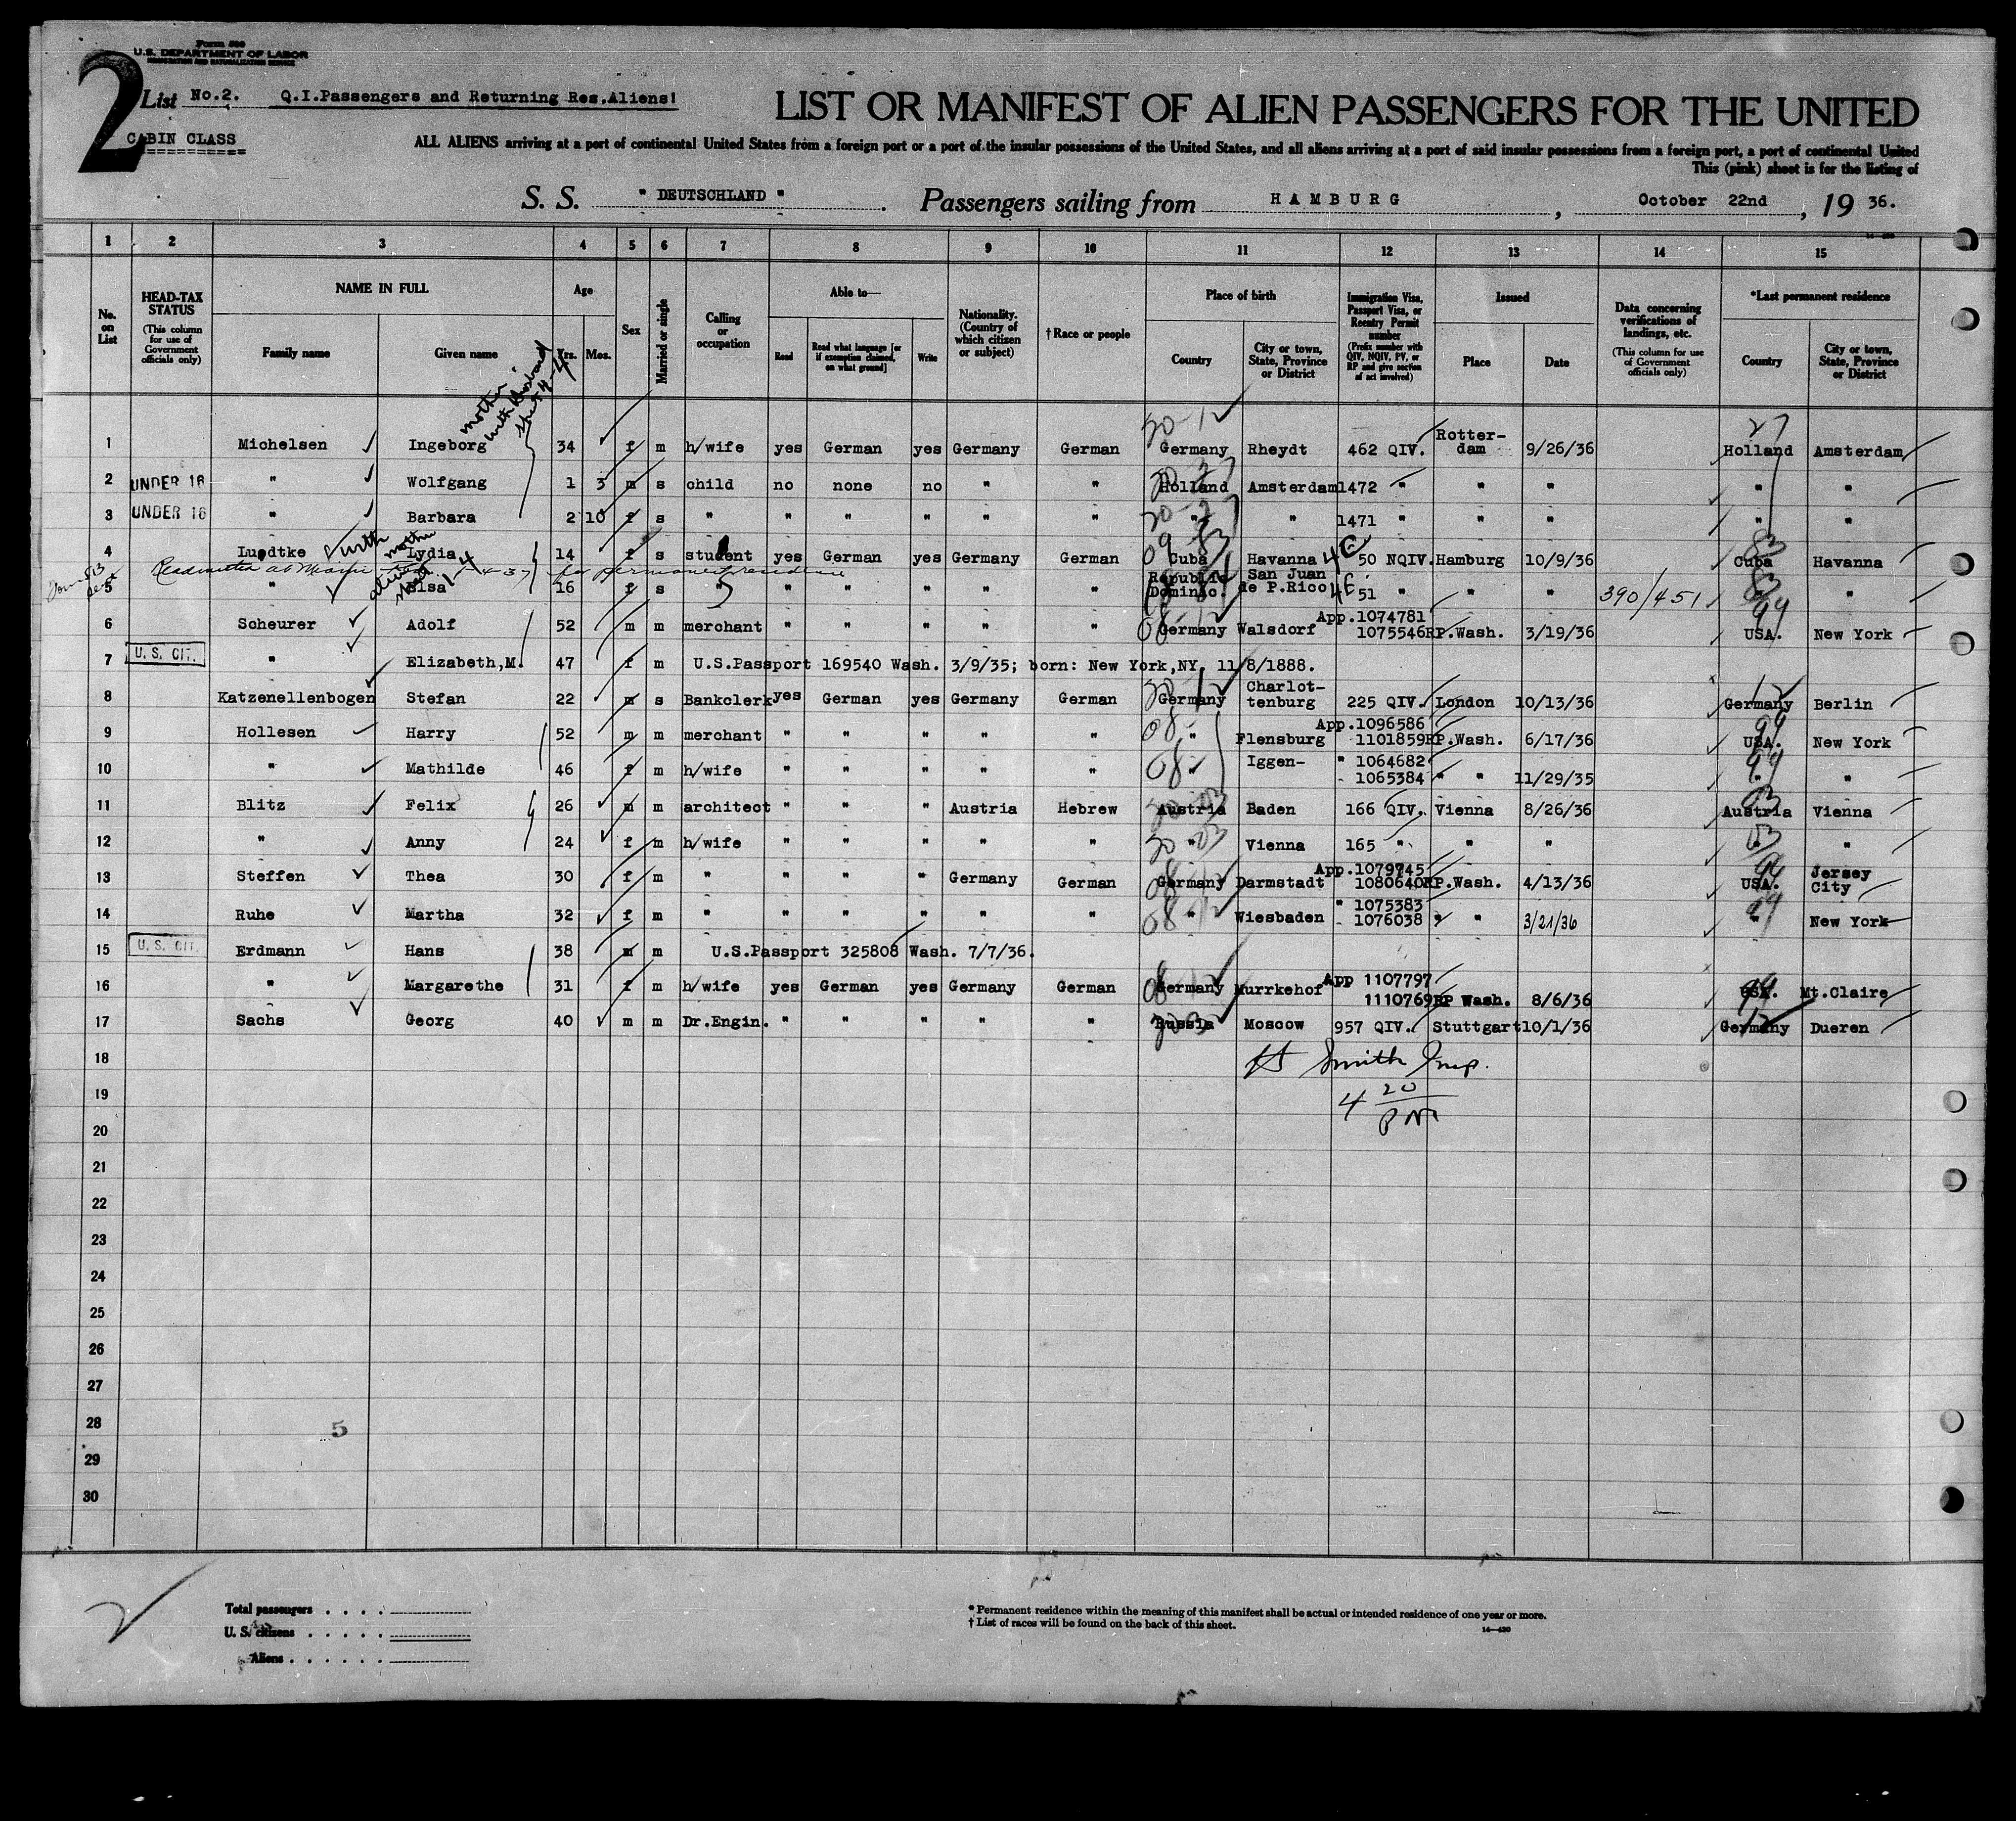 Form 500
U.S. DEPARTMENT OF LABOR
IMMIGRATION AND NATURALIZATION SERVICE
2
List No.2. Q.I.Passengers and Returning Res.Aliens!
CABIN CLASS
LIST OR MANIFEST OF ALIEN PASSENGERS FOR THE UNITED
ALL ALIENS arriving at a port of continental United States from a foreign port or a port of the insular possessions of the United States, and all aliens arriving at a port of said insular possessions from a foreign port, a port of continental United
This (pink) sheet is for the listing of
S. S. " DEUTSCHLAND ". Passengers sailing from HAMBURG, October 22nd, 19 36.
1 2 3 4 5 6 7 8 9 10 11 12 13 14 15
No. on List
HEAD-TAX STATUS
(This column for use of Government officials only)
NAME IN FULL
Family name Given name
Age
Yrs. Mos.
Sex
Married or single
Calling or occupation
Able to—
Read
Read what language [or if exemption claimed, on what ground]
Write
Nationality. (Country of which citizen or subject)
†Race or people
Place of birth
Country
City or town, State, Province or District
Immigration Visa, Passport Visa, or Reentry Permit number
(Prefix number with QIV, NQIV, PV, or RP and give section of act involved)
Issued
Place Date
Data concerning verifications of landings, etc.
(This column for use of Government officials only)
*Last permanent residence
Country
City or town, State, Province or District
mother
with husband
1 Michelsen Ingeborg 34 f m h/wife yes German yes Germany German Germany Rheydt 462 QIV. Rotter-dam 9/26/36 Holland Amsterdam
2 UNDER 16 " Wolfgang 1 3 m s child no none no " " Holland Amsterdam 1472 " " " " "
3 UNDER 16 " Barbara 2 10 f s " " " " " " " " 1471 " " " " "
4 Luedtke Lydia 14 f s student yes German yes Germany German Cuba Havanna 50 NQIV. Hamburg 10/9/36 Cuba Havanna
with mother
for permanent residence
5 " Elsa 16 f s " " " " " " Republic Dominic. San Juan de P.Rico 51 " " " 390/451 " "
6 Scheurer Adolf 52 m m merchant " " " " " Germany Walsdorf App.1074781 1075546RP.Wash. 3/19/36 USA. New York
7 U. S. CIT. " Elizabeth,M. 47 f m U.S.Passport 169540 Wash. 3/9/35; born: New York,NY. 11/8/1888.
8 Katzenellenbogen Stefan 22 m s Bankclerk yes German yes Germany German Germany Charlot-tenburg 225 QIV. London 10/13/36 Germany Berlin
9 Hollesen Harry 52 m m merchant " " " " " " Flensburg App.1096586 1101859RP.Wash. 6/17/36 USA. New York
10 " Mathilde 46 f m h/wife " " " " " " Iggen- " 1064682 1065384 " " 11/29/35 " "
11 Blitz Felix 26 m m architect " " " Austria Hebrew Austria Baden 166 QIV. Vienna 8/26/36 Austria Vienna
12 " Anny 24 f m h/wife " " " " " " Vienna 165 " " " " "
13 Steffen Thea 30 f m " " " " Germany German Germany Darmstadt App.1079745 1080640RP.Wash. 4/13/36 USA. Jersey City
14 Ruhe Martha 32 f m " " " " " " " Wiesbaden " 1075383 1076038 " " 3/21/36 " New York
15 U. S. CIT. Erdmann Hans 38 m m U.S.Passport 325808 Wash. 7/7/36.
16 " Margarethe 31 f m h/wife yes German yes Germany German Germany Murrkehof App 1107797 1110769RP Wash. 8/6/36 USA. Mt.Claire
17 Sachs Georg 40 m m Dr.Engin. " " " " " Russia Moscow 957 QIV. Stuttgart 10/1/36 Germany Dueren
18 Smith Insp.
19 4 20
PM
20
21
22
23
24
25
26
27
28 5
29
30
Total passengers . . . .
U. S. citizens . . . . .
Aliens . . . . . .
* Permanent residence within the meaning of this manifest shall be actual or intended residence of one year or more.
† List of races will be found on the back of this sheet.